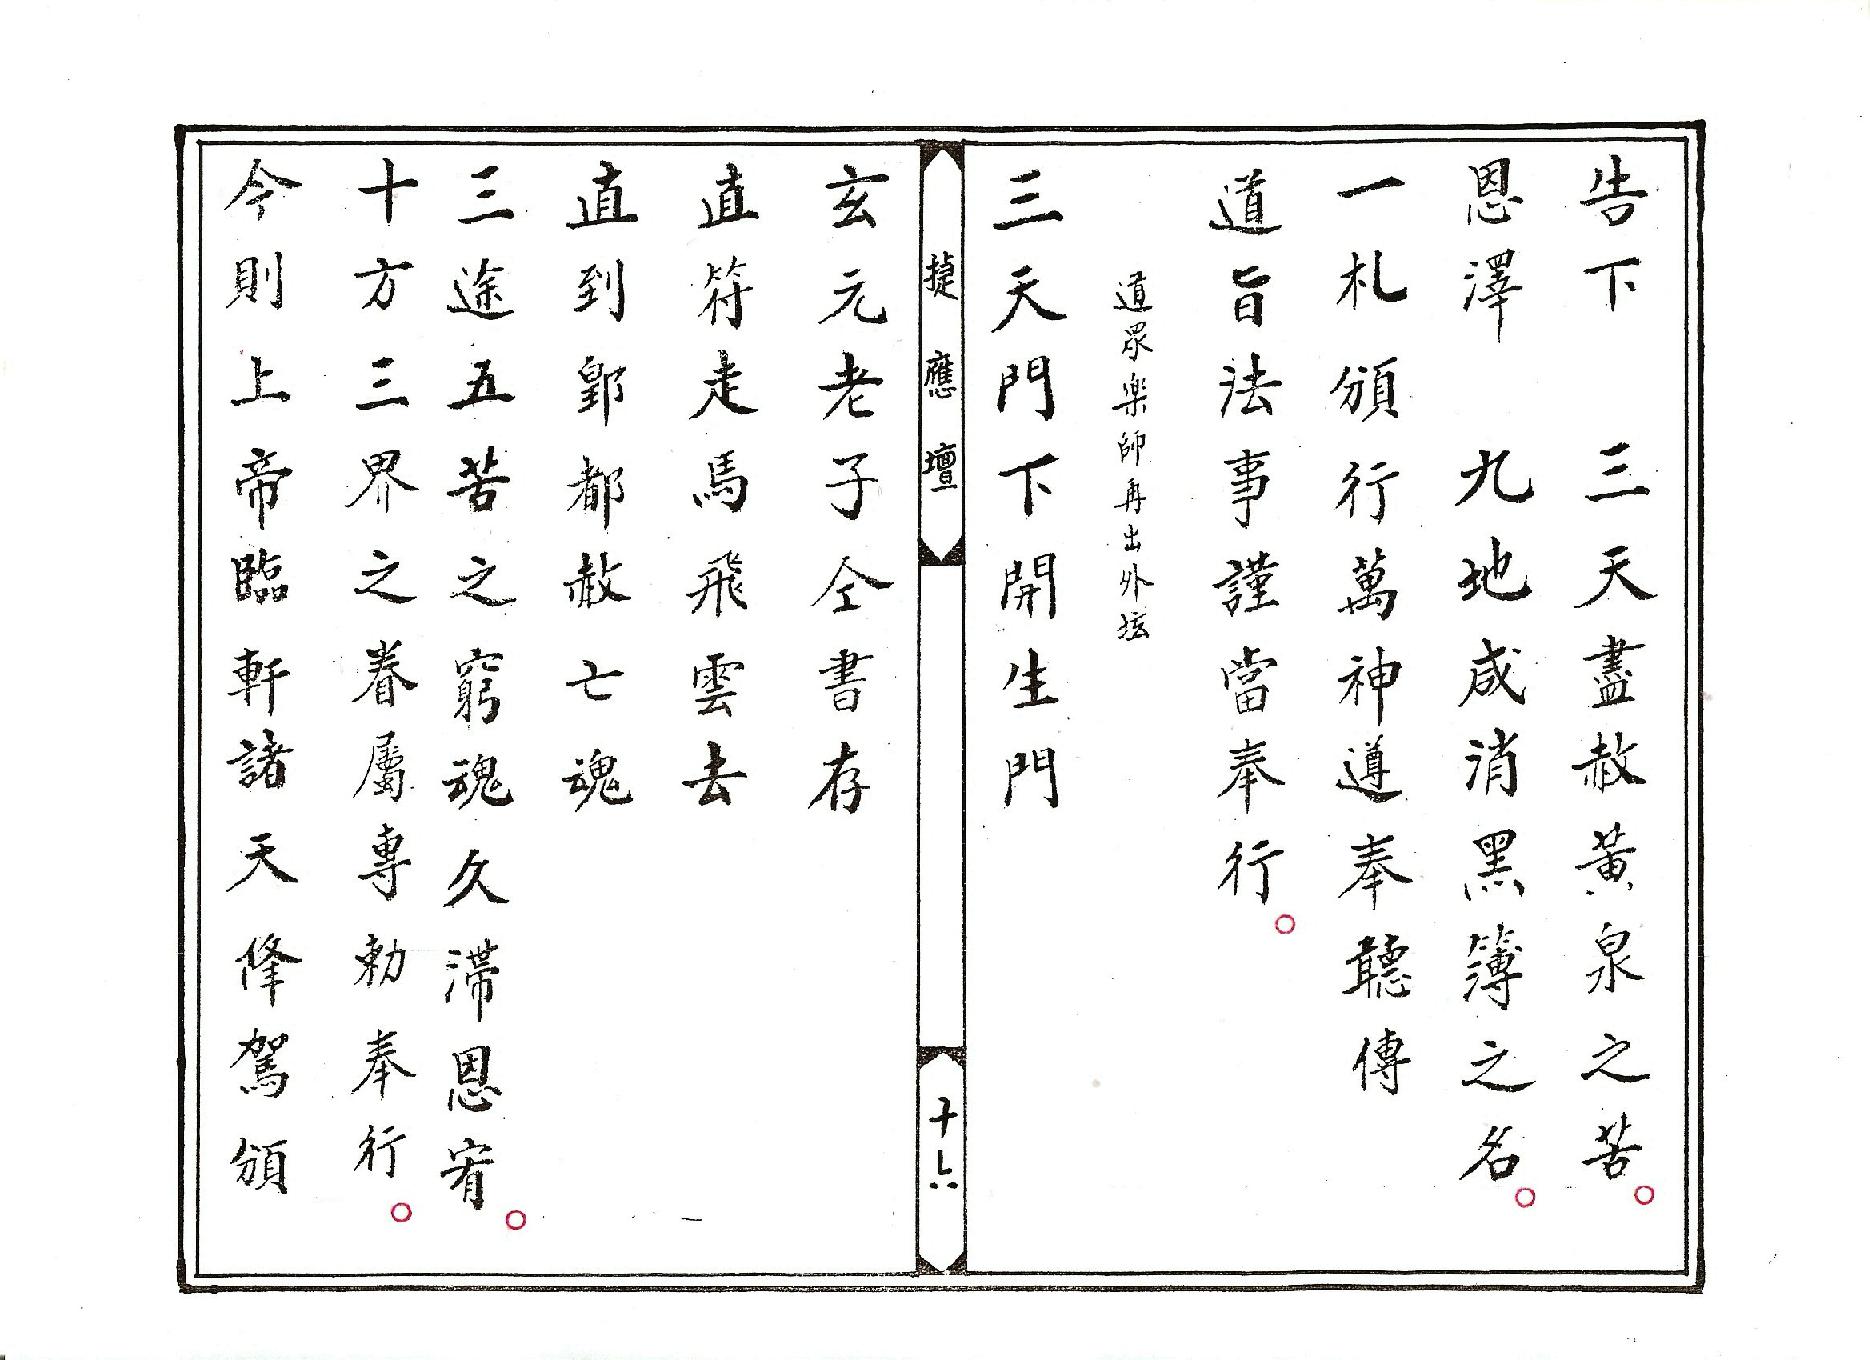 告下　三天盡赦黃泉之苦
恩澤　九地咸消黑簿之名
一札頒行萬神遵奉聽傳
道旨法事謹當奉行
道眾樂師再出外坛
三天門下開生門
捷應壇
十六
玄元老子仝書存
直符走馬飛雲去
直到酆都赦亡魂
三途五苦之窮魂久滯恩宥
十方三界之眷屬專勅奉行
今則上帝臨軒諸天降駕頒